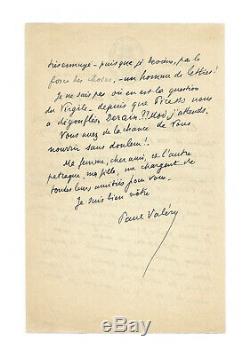 puisque je deviens, par la
force des choses, - un homme de lettres!
Je ne sais pas où en est la question
du Virgile - depuis que nous
a j'attends.
Vous avez de la chance de Vous
nourrir sans douleur!
Ma femme, cher ami, et l'autre
ma fille, me chargent de
toutes leurs amitiés pour vous.
Je suis bien vôtre
Paul Valéry